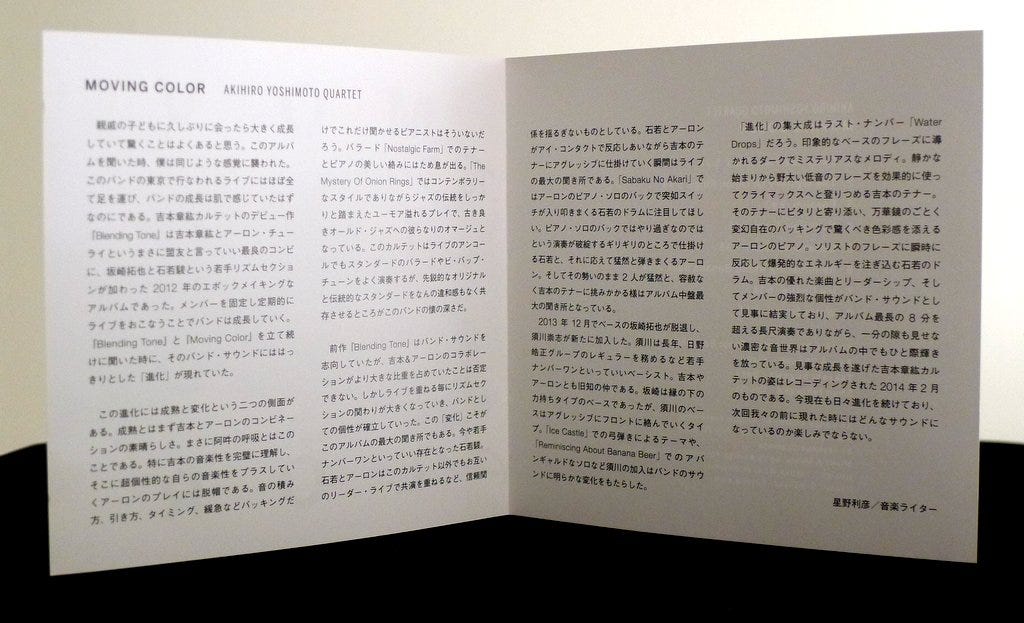 MOVING COLOR AKIHIRO YOSHIMOTO QUARTET
親戚の子どもに久しぶりに会ったら大きく成長
していて驚くことはよくあると思う。このアルバ
ムを聞いた時、僕は同じような感覚に襲われた。
このバンドの東京で行なわれるライブにはほぼ全
て足を運び、バンドの成長は肌で感じていたはず
なのにである。吉本章紘カルテットのデビュー作
「Blending Tone」は吉本章紘とアーロン・チュー
ライというまさに盟友と言っていい最良のコンビ
に、坂崎拓也と石若駿という若手リズムセクショ
ンが加わった 2012 年のエポックメイキングな
アルバムであった。メンバーを固定し定期的に
ライブをおこなうことでバンドは成長していく。
「Blending Tone」と「Moving Color」を立て続
けに聞いた時に、そのバンド・サウンドにははっ
きりとした「進化」が現れていた。
この進化には成熟と変化という二つの側面が
ある。成熟とはまず吉本とアーロンのコンビネー
ションの素晴らしさ。まさに阿吽の呼吸とはこの
ことである。特に吉本の音楽性を完璧に理解し、
そこに超個性的な自らの音楽性をプラスしてい
くアーロンのプレイには脱帽である。音の積み
方、引き方、タイミング、緩急などバッキングだ
けでこれだけ聞かせるピアニストはそういないだ
ろう。バラード「Nostalgic Farm」でのテナー
とピアノの美しい絡みにはため息が出る。「The
Mystery Of Onion Rings」ではコンテンポラリー
なスタイルでありながらジャズの伝統をしっか
りと踏まえたユーモア溢れるプレイで、古き良
きオールド・ジャズへの彼らなりのオマージュと
なっている。このカルテットはライブのアンコー
ルでもスタンダードのバラードやビ・バップ・
チューンをよく演奏するが、先鋭的なオリジナル
と伝統的なスタンダードをなんの違和感もなく共
存させるところがこのバンドの懐の深さだ。
前作「Blending Tone」はバンド・サウンドを
志向していたが、吉本&アーロンのコラボレー
ションがより大きな比重を占めていたことは否定
できない。しかしライブを重ねる毎にリズムセク
ションの関わりが大きくなっていき、バンドとし
ての個性が確立していった。この「変化」こそが
このアルバムの最大の聞き所でもある。今や若手
ナンバーワンといっていい存在となった石若駿。
石若とアーロンはこのカルテット以外でもお互い
のリーダー・ライブで共演を重ねるなど、信頼関
係を揺るぎないものとしている。石若とアーロン
がアイ・コンタクトで反応しあいながら吉本のテ
ナーにアグレッシブに仕掛けていく瞬間はライブ
の最大の聞き所である。「Sabaku No Akari」で
はアーロンのピアノ・ソロのバックで突如スイッ
チが入り叩きまくる石若のドラムに注目してほし
い。ピアノ・ソロのバックではやり過ぎなのでは
という演奏が破綻するギリギリのところで仕掛け
る石若と、それに応えて猛然と弾きまくるアーロ
ン。そしてその勢いのまま 2 人が猛然と、容赦な
く吉本のテナーに挑みかかる様はアルバム中盤最
大の聞き所となっている。
2013 年 12月でベースの坂崎拓也が脱退し、
須川崇志が新たに加入した。須川は長年、日野
皓正グループのレギュラーを務めるなど若手
ナンバーワンといっていいベーシスト。吉本や
アーロンとも旧知の仲である。坂崎は縁の下の
力持ちタイプのベースであったが、須川のベー
スはアグレッシブにフロントに絡んでいくタイ
プ。「Ice Castle」での弓弾きによるテーマや、
「Reminiscing About Banana Beer」でのアバ
ンギャルドなソロなど須川の加入はバンドのサウ
ンドに明らかな変化をもたらした。
「進化」の集大成はラスト・ナンバー「Water
Drops」だろう。印象的なベースのフレーズに導
かれるダークでミステリアスなメロディ。静かな
始まりから野太い低音のフレーズを効果的に使っ
てクライマックスへと登りつめる吉本のテナー。
そのテナーにピタリと寄り添い、万華鏡のごとく
変幻自在のバッキングで驚くべき色彩感を添える
アーロンのピアノ。ソリストのフレーズに瞬時に
反応して爆発的なエネルギーを注ぎ込む石若のド
ラム。吉本の優れた楽曲とリーダーシップ、そし
てメンバーの強烈な個性がバンド・サウンドとし
て見事に結実しており、アルバム最長の 8 分を
超える長尺演奏でありながら、一分の隙も見せな
い濃密な音世界はアルバムの中でもひと際輝き
を放っている。見事な成長を遂げた吉本章紘カル
テットの姿はレコーディングされた 2014 年 2 月
のものである。今現在も日々進化を続けており、
次回我々の前に現れた時にはどんなサウンドに
なっているのか楽しみでならない。
星野利彦／音楽ライター